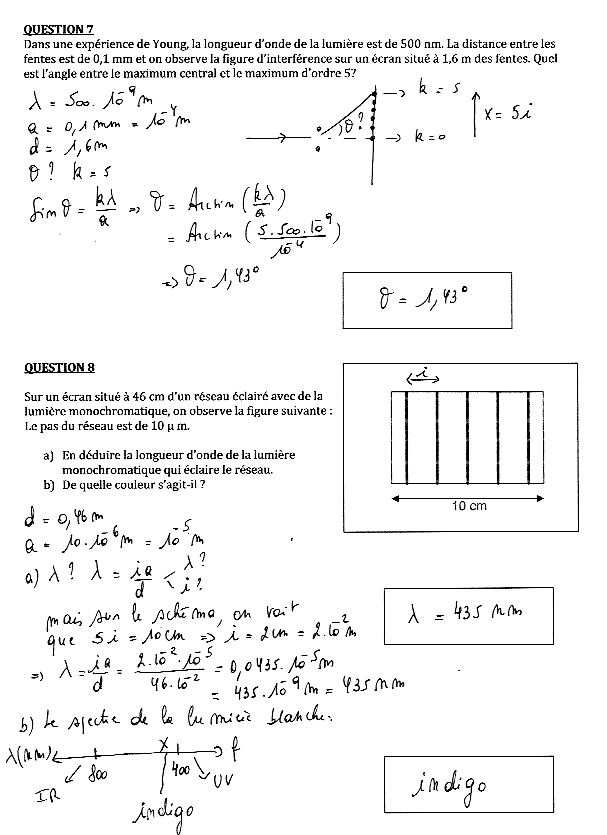 QUESTION 7
Dans une expérience de Young, la longueur d'onde de la lumière est de 500 nm. La distance entre les
fentes est de 0,1 mm et on observe la figure d'interférence sur un écran situé à 1,6 m des fentes. Quel
est l'angle entre le maximum central et le maximum d'ordre 5?
λ = 500. 10⁻⁹ m
a = 0,1 mm = 10⁻⁴ m
d = 1,6 m
θ ? k = 5
θ?
→ k = 5
→ k = 0
x = 5i
Sin θ = kλ/a => θ = Arcsin (kλ/a)
= Arcsin (5. 500. 10⁻⁹/10⁻⁴)
=> θ = 1,43°
θ = 1,43°
QUESTION 8
Sur un écran situé à 46 cm d'un réseau éclairé avec de la
lumière monochromatique, on observe la figure suivante :
Le pas du réseau est de 10 μ m.
a) En déduire la longueur d'onde de la lumière
monochromatique qui éclaire le réseau.
b) De quelle couleur s'agit-il ?
i
10 cm
d = 0,46 m
a = 10. 10⁻⁶ m = 10⁻⁵ m
a) λ ? λ = ia/d < λ ? i ?
mais sur le schéma, on voit
que 5i = 10 cm => i = 2 cm = 2. 10⁻² m
=> λ = ia/d = 2. 10⁻². 10⁻⁵/46. 10⁻² = 0,0435. 10⁻⁵ m
= 435. 10⁻⁹ m = 435 nm
λ = 435 nm
b) Le spectre de la lumière blanche.
λ(nm) 800 X 400 f
IR UV
indigo
indigo